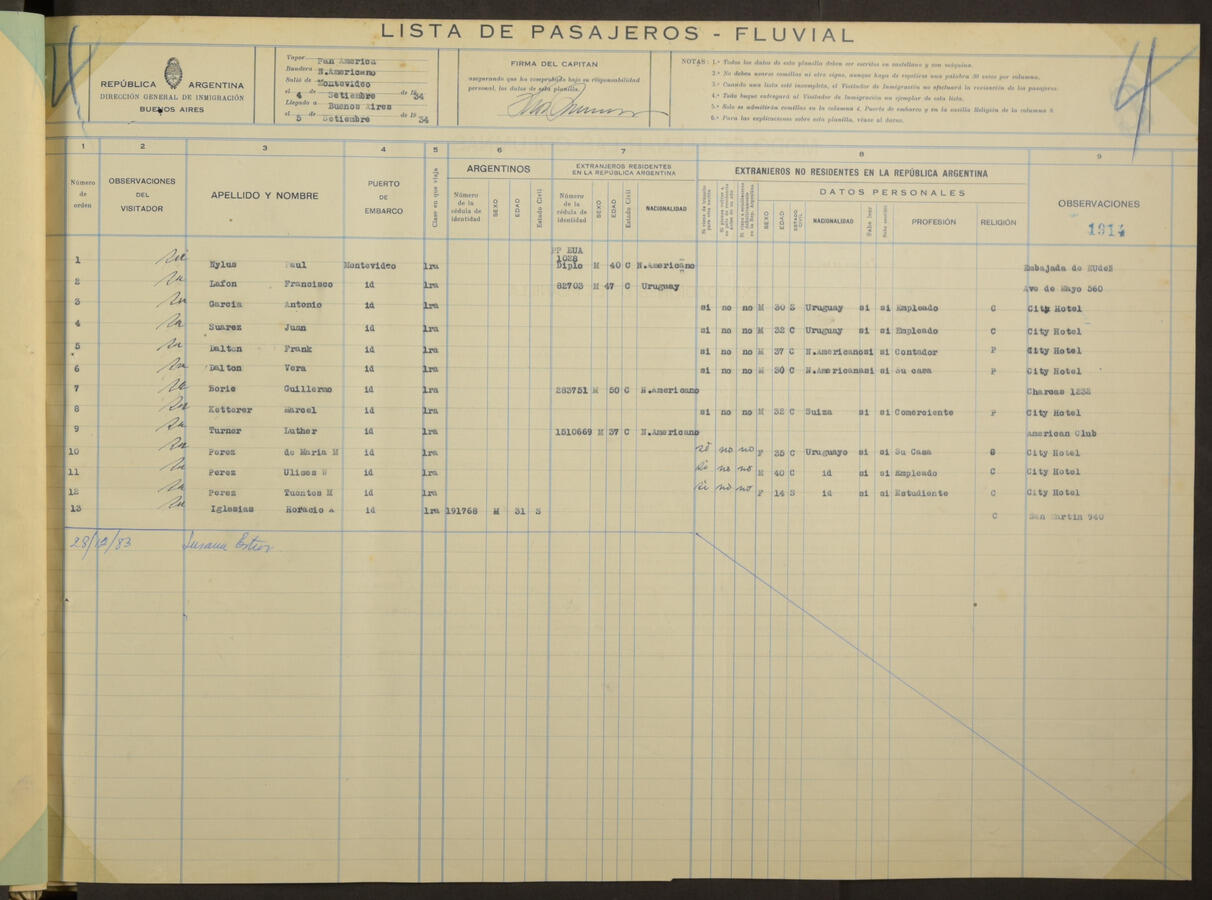 LISTA DE PASAJEROS - FLUVIAL
REPÚBLICA ARGENTINA
DIRECCIÓN GENERAL DE INMIGRACIÓN
BUENOS AIRES
Vapor Pan America
Bandera N.Americano
Salió de Montevideo
el 4 de Setiembre de 1934
Llegado a Buenos Aires
el 5 de Setiembre de 1934
FIRMA DEL CAPITAN
asegurando que ha comprobado bajo su responsabilidad
personal, los datos de esta planilla.
NOTAS: 1.ª Todos los datos de esta planilla deben ser escritos en castellano y con máquina.
2.ª No deben usarse comillas ni otro signo, aunque haya de repetirse una palabra 30 veces por columna.
3.ª Cuando una lista esté incompleta, el Visitador de Inmigración no efectuará la revisación de los pasajeros.
4.ª Todo buque entregará al Visitador de Inmigración un ejemplar de esta lista.
5.ª Solo se admitirán comillas en la columna 4. Puerto de embarco y en la casilla Religión de la columna 8.
6.ª Para las explicaciones sobre esta planilla, véase al dorso.
4
1 2 3 4 5 6 7 8 9
Número de orden
OBSERVACIONES DEL VISITADOR
APELLIDO Y NOMBRE
PUERTO DE EMBARCO
Clase en que viaja
ARGENTINOS
Número de la cédula de identidad SEXO EDAD Estado Civil
EXTRANJEROS RESIDENTES EN LA REPÚBLICA ARGENTINA
Número de la cédula de identidad SEXO EDAD Estado Civil NACIONALIDAD
EXTRANJEROS NO RESIDENTES EN LA REPÚBLICA ARGENTINA
DATOS PERSONALES
SEXO EDAD ESTADO CIVIL NACIONALIDAD Sabe leer Sabe escribir PROFESIÓN RELIGIÓN
OBSERVACIONES
1914
PP EUA
1028
1 Nylus Paul Montevideo 1ra Diplo M 40 C N.Americano Embajada de EUdeN
2 Lafon Francisco id 1ra 82703 M 47 C Uruguay Ave de Mayo 560
3 Garcia Antonio id 1ra si no no M 30 S Uruguay si si Empleado C City Hotel
4 Suarez Juan id 1ra si no no M 32 C Uruguay si si Empleado C City Hotel
5 Dalton Frank id 1ra si no no M 37 C N.Americano si si Contador P City Hotel
6 Dalton Vera id 1ra si no no M 30 C N.Americana si si Su casa P City Hotel
7 Borie Guillermo id 1ra 283751 M 50 C N.americano Charcas 1232
8 Ketterer Marcel id 1ra si no no M 32 C Suiza si si Comerciente P City Hotel
9 Turner Luther id 1ra 1510669 M 37 C N.Americano American Club
10 Perez de Maria M id 1ra si no no F 35 C Uruguayo si si Su Casa C City Hotel
11 Perez Ulises W id 1ra si no no M 40 C id si si Empleado C City Hotel
12 Perez Tuentes M id 1ra si no no F 14 S id si si Estudiente C City Hotel
13 Iglesias Horacio A id 1ra 191768 M 31 S C San Martin 940
28/12/83 Susana